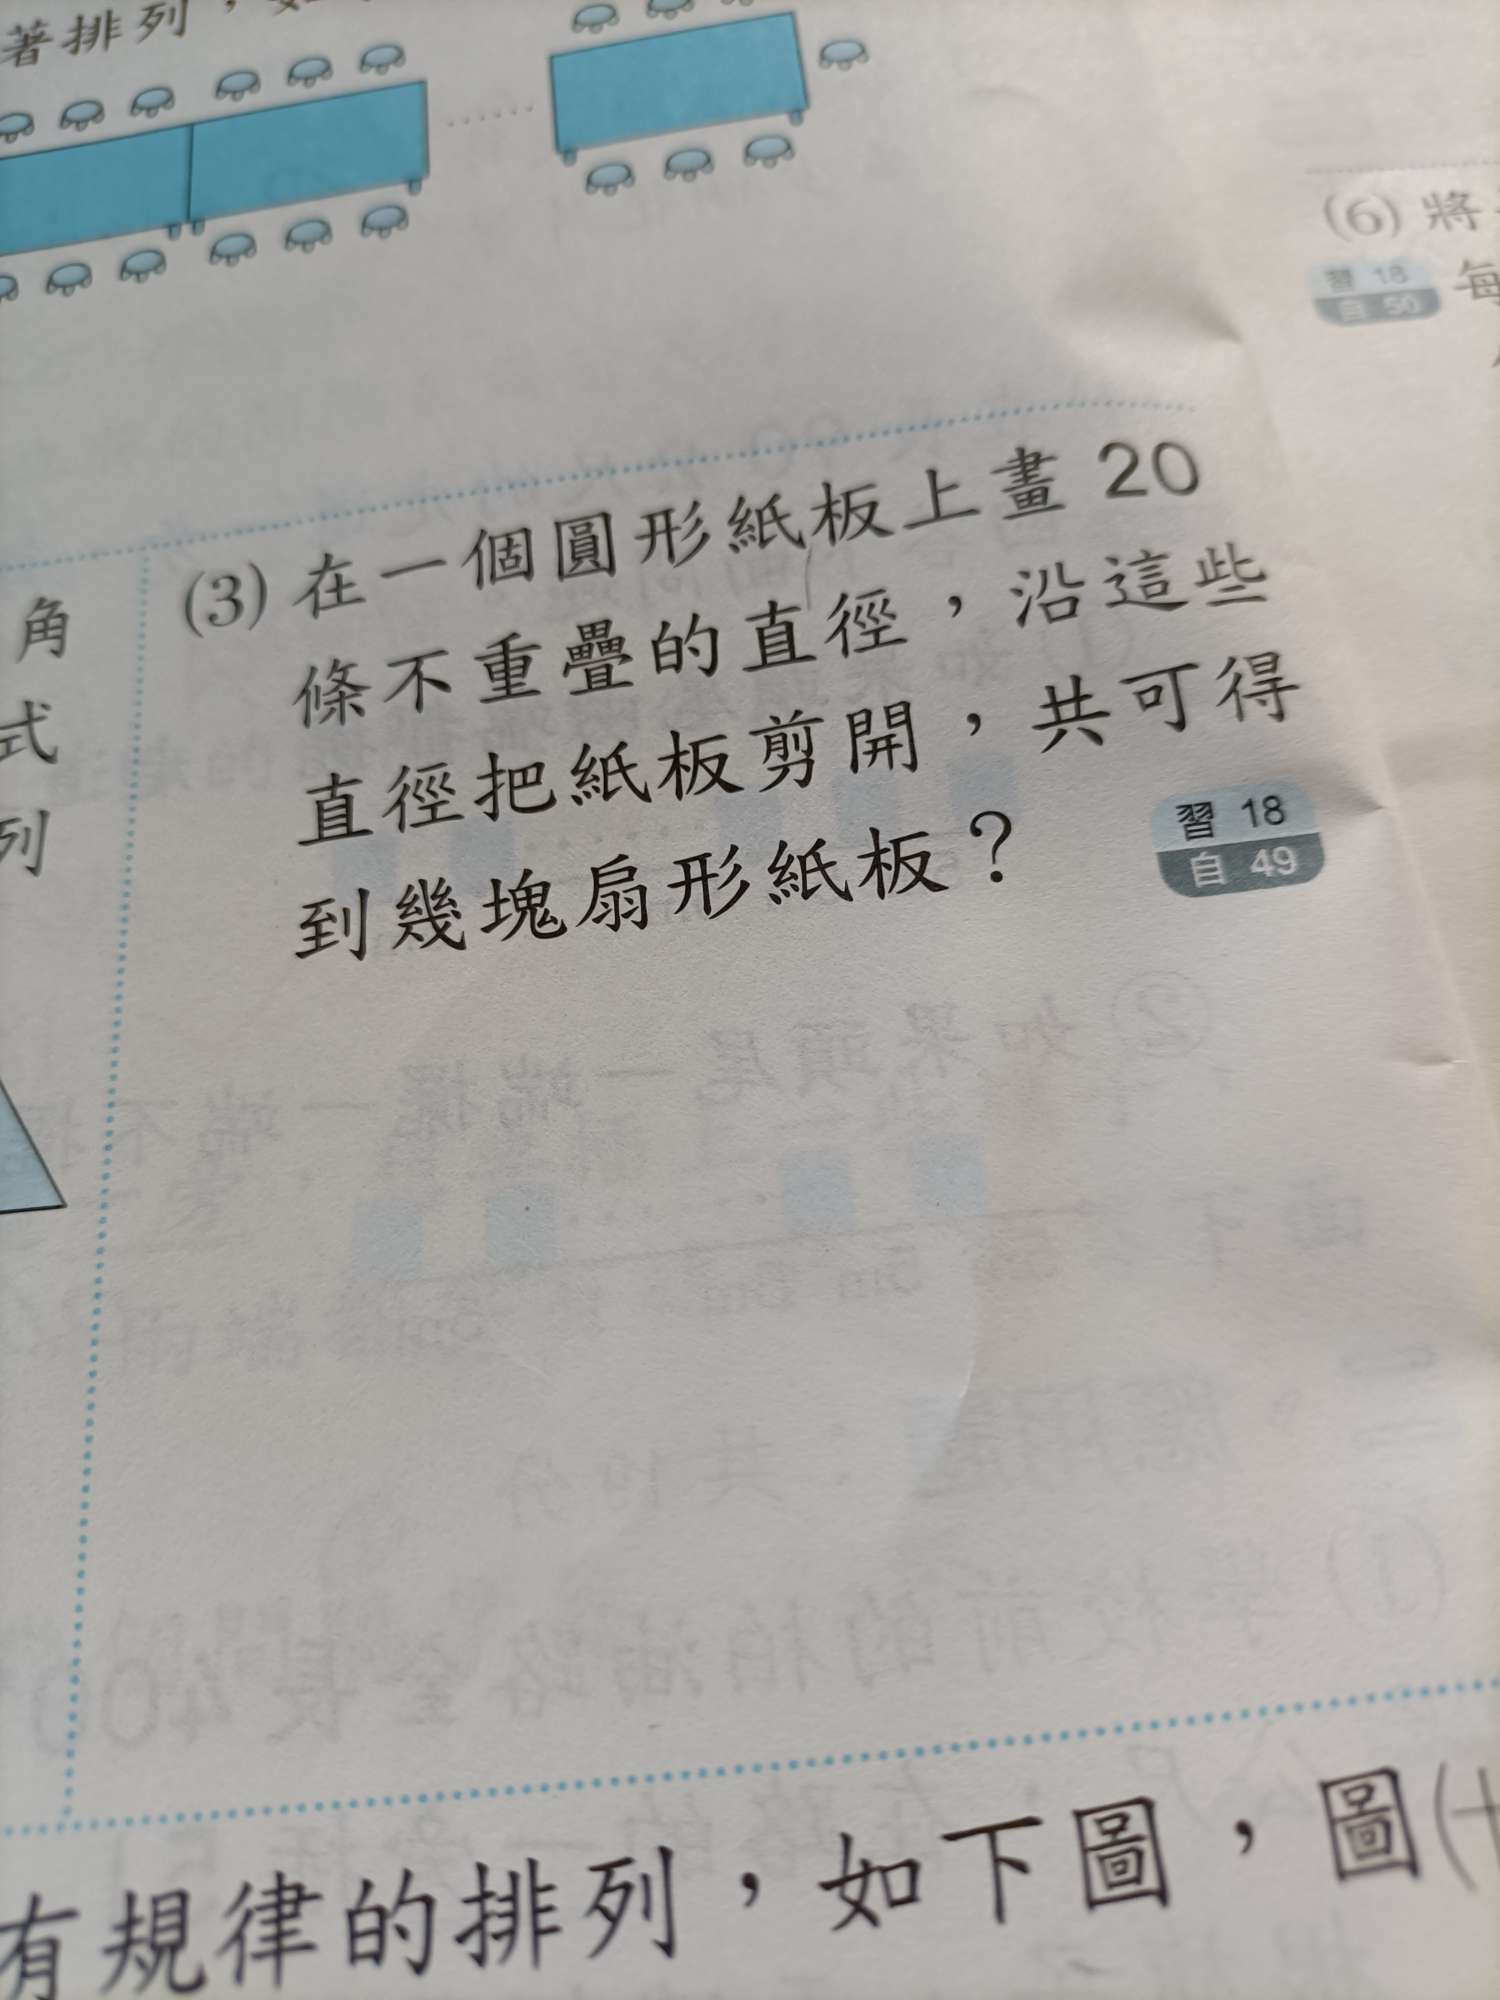 著排列，如
(6) 將
習 18
自 50
每
(3) 在一個圓形紙板上畫 20
條不重疊的直徑，沿這些
直徑把紙板剪開，共可得
到幾塊扇形紙板？
習 18
自 49
角
式
列
有規律的排列，如下圖，圖(十